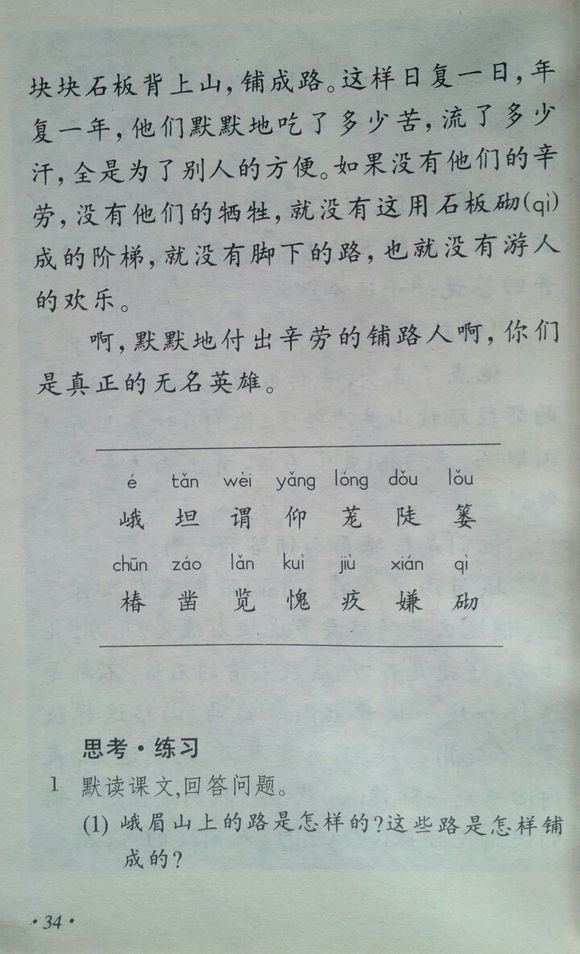 块块石板背上山，铺成路。这样日复一日，年
复一年，他们默默地吃了多少苦，流了多少
汗，全是为了别人的方便。如果没有他们的辛
劳，没有他们的牺牲，就没有这用石板砌(qì)
成的阶梯，就没有脚下的路，也就没有游人
的欢乐。
啊，默默地付出辛劳的铺路人啊，你们
是真正的无名英雄。
é tǎn wèi yǎng lóng dǒu lǒu
峨 坦 谓 仰 茏 陡 篓
chūn záo lǎn kuì jiù xián qì
椿 凿 览 愧 疚 嫌 砌
思考·练习
1 默读课文,回答问题。
(1) 峨眉山上的路是怎样的?这些路是怎样铺
成的?
·34·